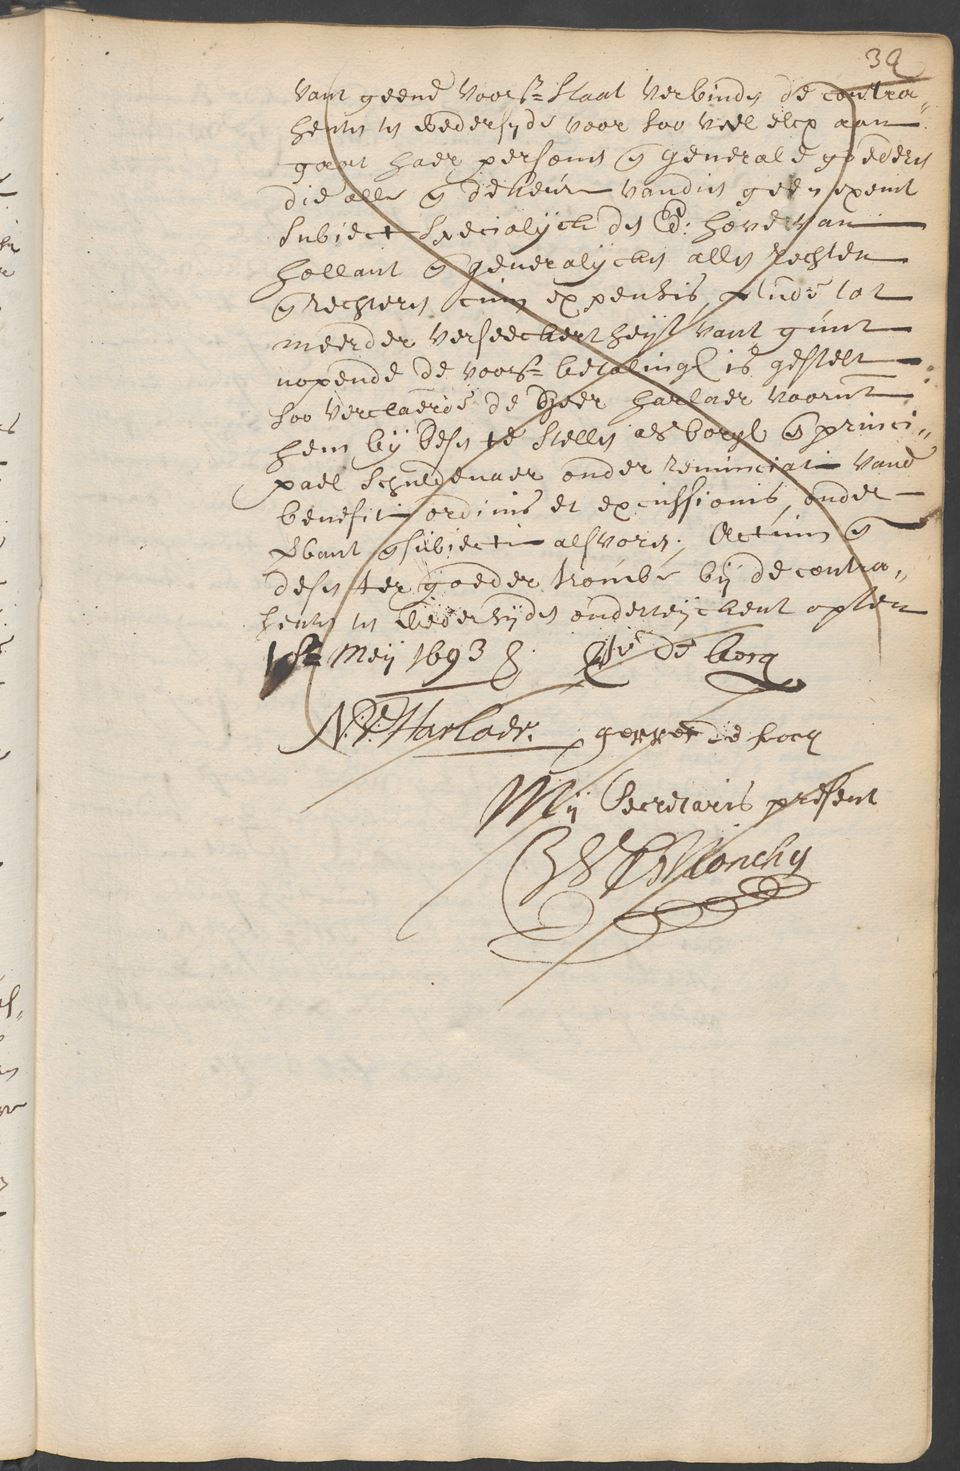 39
vant geene voors: staat verbinden de contra„
henten ten wedersyde voor soo veel elcx aan„
gaat haer persoons en generale goederen
die alle en de keure vandien geen exemt
Subject Specialyck den Ed: hove van
hollant en generalycken allen Rechten
en Rechteren cum expensis, Ende tot
meerder verseeckertheyt vant gunt
nopende de voors: betalingh is gestelt
soo verclaerde de heer harlaer voornt
hem by desen te stellen als borgh en princi„
pael Schuldenaer onder renunciatie vande
benefitie ordinis et excussionis, onder
verbant en subjectie als voren; Actum en
desen ter goeder trouwe by de contra„
henten ten wedersyden onderteijckent opten
1en Meij 1693
de Cocq
N: V: Harlaer. gerret de kocq
Mij Secretaris present